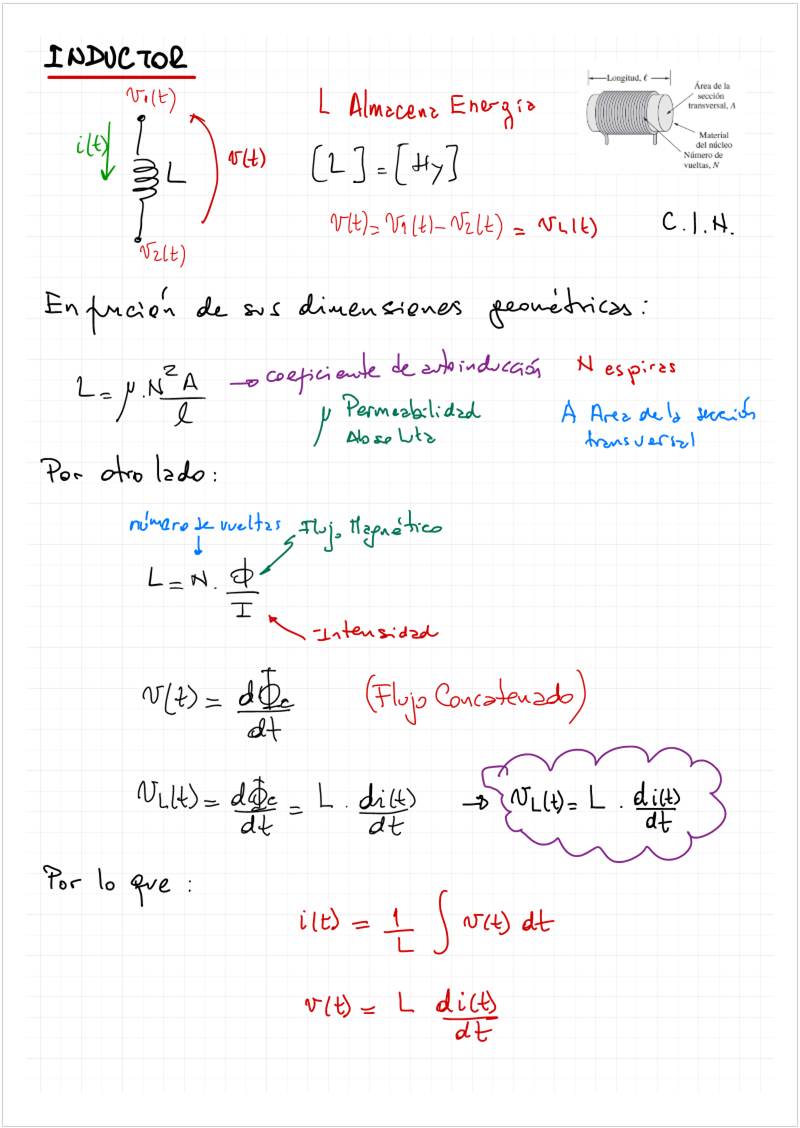 INDUCTOR
v₁(t)
i(t)
L
v(t)
v₂(t)
L Almacena Energía
[L] = [Hy]
v(t) = v₁(t) - v₂(t) = v_L(t)
C.I.N.
Longitud, ℓ
Área de la
sección
transversal, A
Material
del núcleo
Número de
vueltas, N
En función de sus dimensiones geométricas:
L = μ.N² A / l → coeficiente de autoinducción
N espiras
μ Permeabilidad
Absoluta
A Area de la sección
transversal
Por otro lado:
número de vueltas
Flujo Magnético
L = N . Φ / I
Intensidad
v(t) = dΦc / dt (Flujo Concatenado)
v_L(t) = dΦc / dt = L . di(t) / dt → v_L(t) = L . di(t) / dt
Por lo que :
i(t) = 1/L ∫ v(t) dt
v(t) = L di(t) / dt